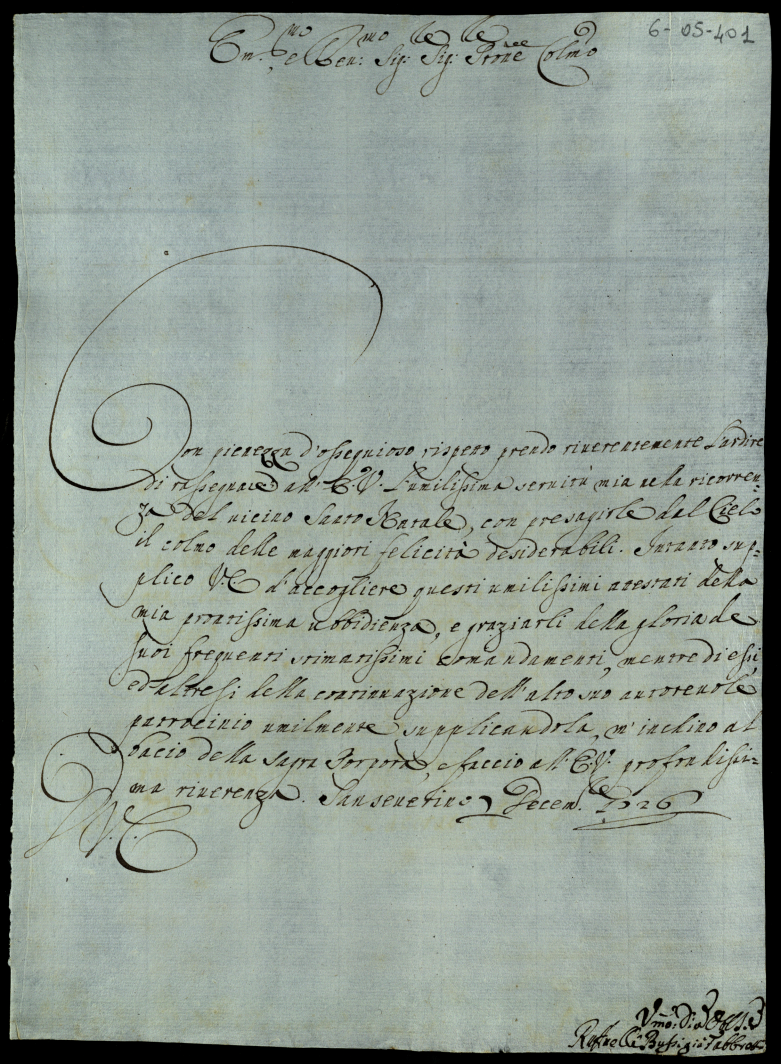 6-05-401
Em.mo e Reu: mo Sig: re Sig: re Prone Colmo
Con pienezza d'ossequioso rispetto prendo riuerentemente l'ardire
di rassegnare all' E.V. l'umilissima seruitù mia nella ricorren=
za del uicino Santo Natale, con presagirle dal Cielo
il colmo delle maggiori felicità desiderabili. Intanto sup=
plico V.E. d'accogliere questi umilissimi attestati della
mia prontissima ubbidienza, e graziarli della gloria de
suoi frequenti stimatissimi comandamenti, mentre di essi,
ed'altresi della continuazione dell'alto suo autoreuole
patrocinio umilmente supplicandola, m'inchino al
bacio della Sagra Porpora, e faccio all' E.V. profondissi=
ma riuerenza. Sanseuerino Decem. 1726
V.E.
Vmo: Diu:
Raffaelle